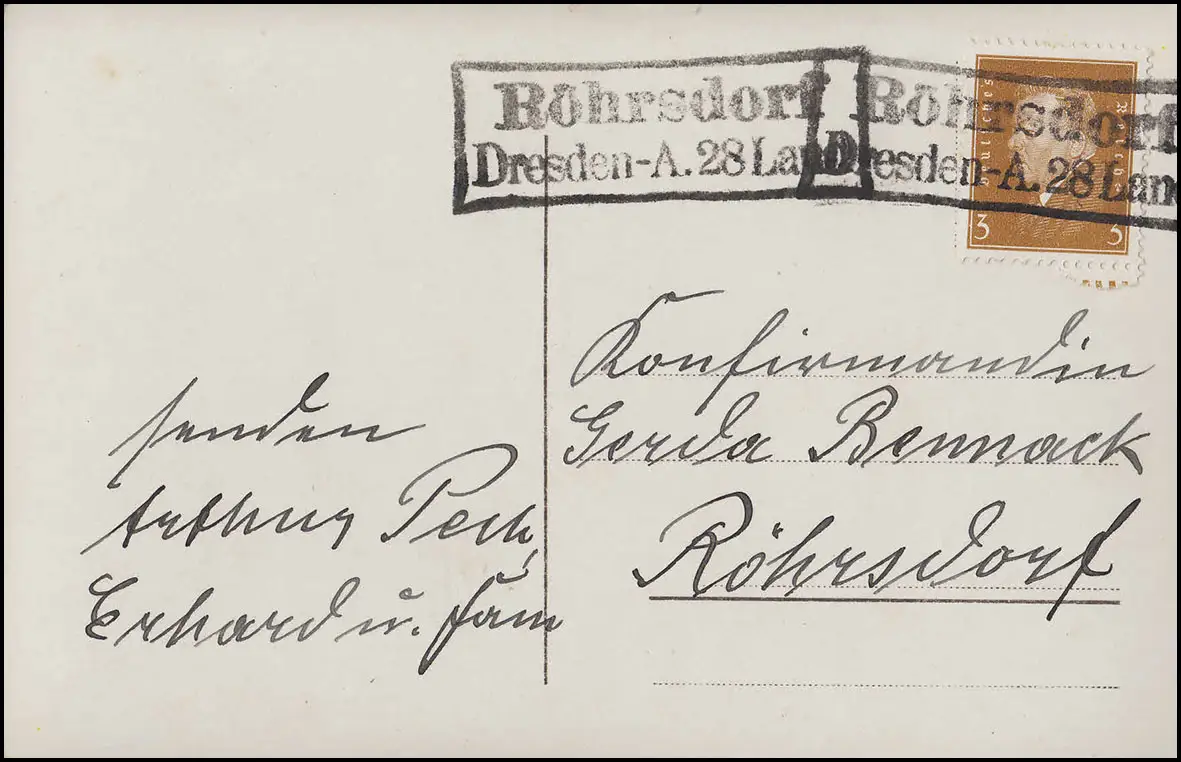 Röhrsdorf
Dresden-A. 28 Land
Röhrsdorf
Dresden-A. 28 Land
Deutsches Reich
3 3
Konfirmandin
Gerda Bennack
Röhrsdorf
senden
Arthur Pech,
Erhard u. Fam